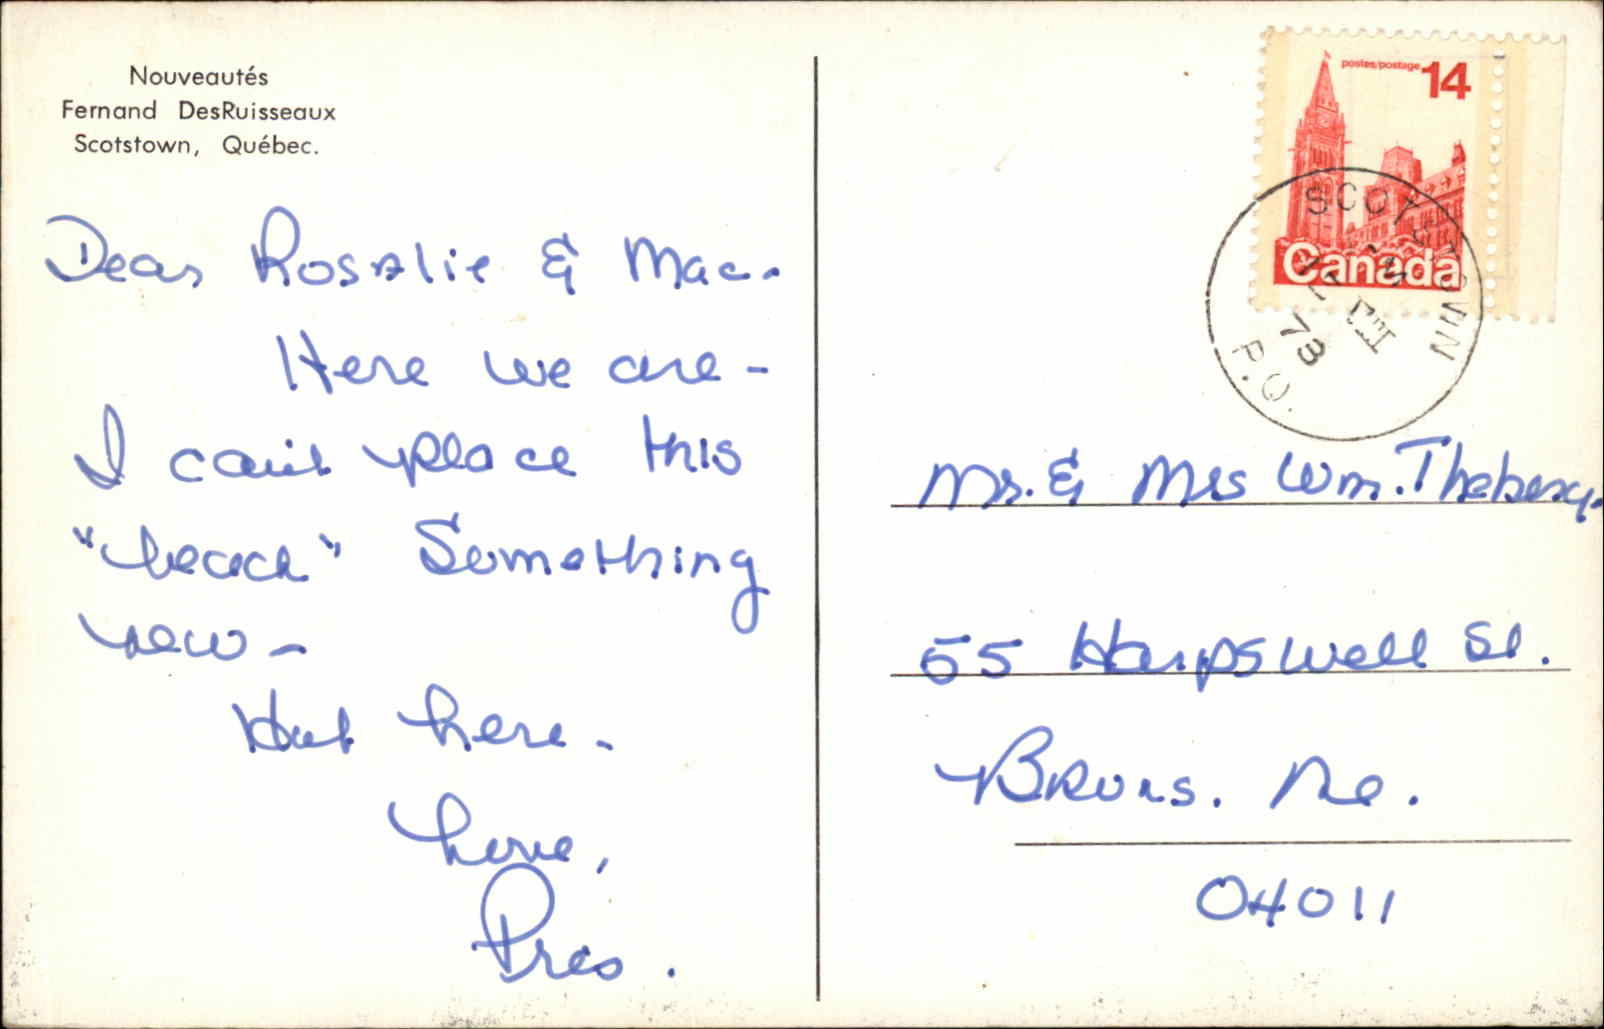 Nouveautés
Fernand DesRuisseaux
Scotstown, Québec.
Dear Rosalie & Mac.
Here we are -
I can't place this
"beach" Something
new -
Hut here.
Love,
Pres.
postes/postage 14
Canada
SCOTSTOWN
P.Q.
Mr. & Mrs Wm. Theberge
55 Harpswell St.
Bruns. Me.
04011